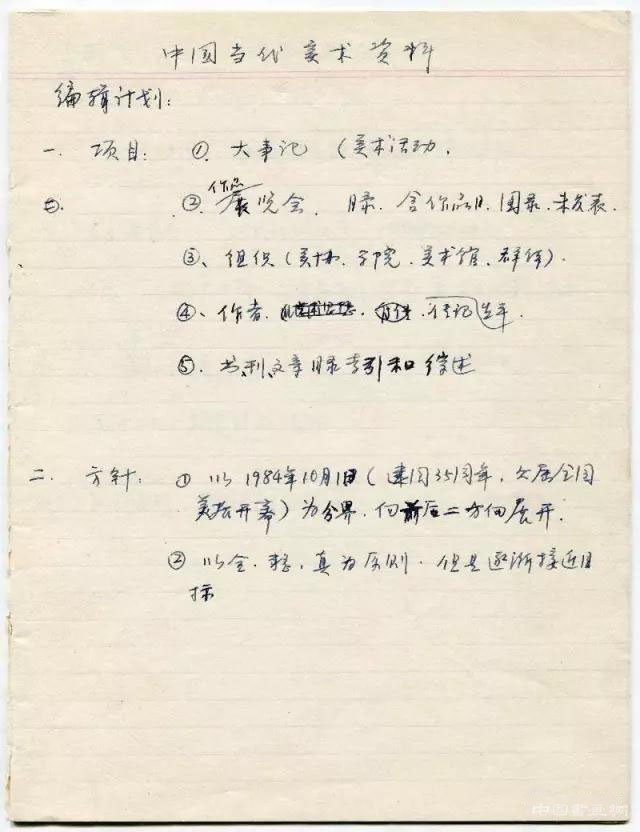 中国当代美术资料
编辑计划：
一. 项目： ①. 大事记（美术活动.
② 作品展览会. 目录. 含作品目. 图录. 未发表.
③、组织（美协、学院、美术馆、群体）.
④、作者. 传记 生平.
⑤. 书、刊、文章目录索引和综述
二. 方针： ① 以1984年10月1日（建国35周年，六届全国
美展开幕）为分界. 向前后二方向展开.
② 以全. 整. 真为原则. 但是逐渐接近目
标
中国书画网